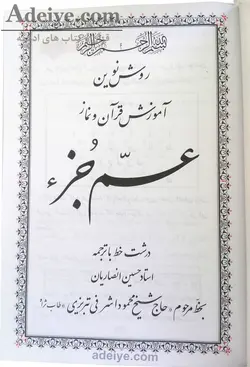 Adeiye.com
بسم الله الرحمن الرحیم
روش نوین
آموزش قرآن و نماز
عمّ جُزء
درشت خط با ترجمه
استاد حسین انصاریان
بخط مرحوم حاج شیخ محمود اشرفی تبریزی «طاب ثراه»
adeiye.com